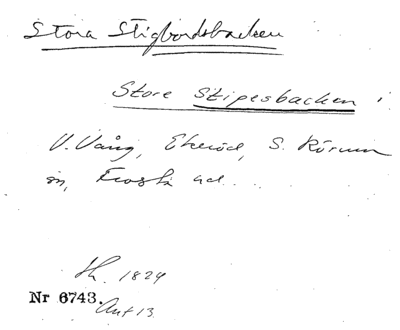 Stora Stigbordsbacken
Store Stipesbacken
V. Vång, Ekeröd, S. Rörum
sn, Frosta hd.
Sk. 1829
Nr 6743. Ant 13